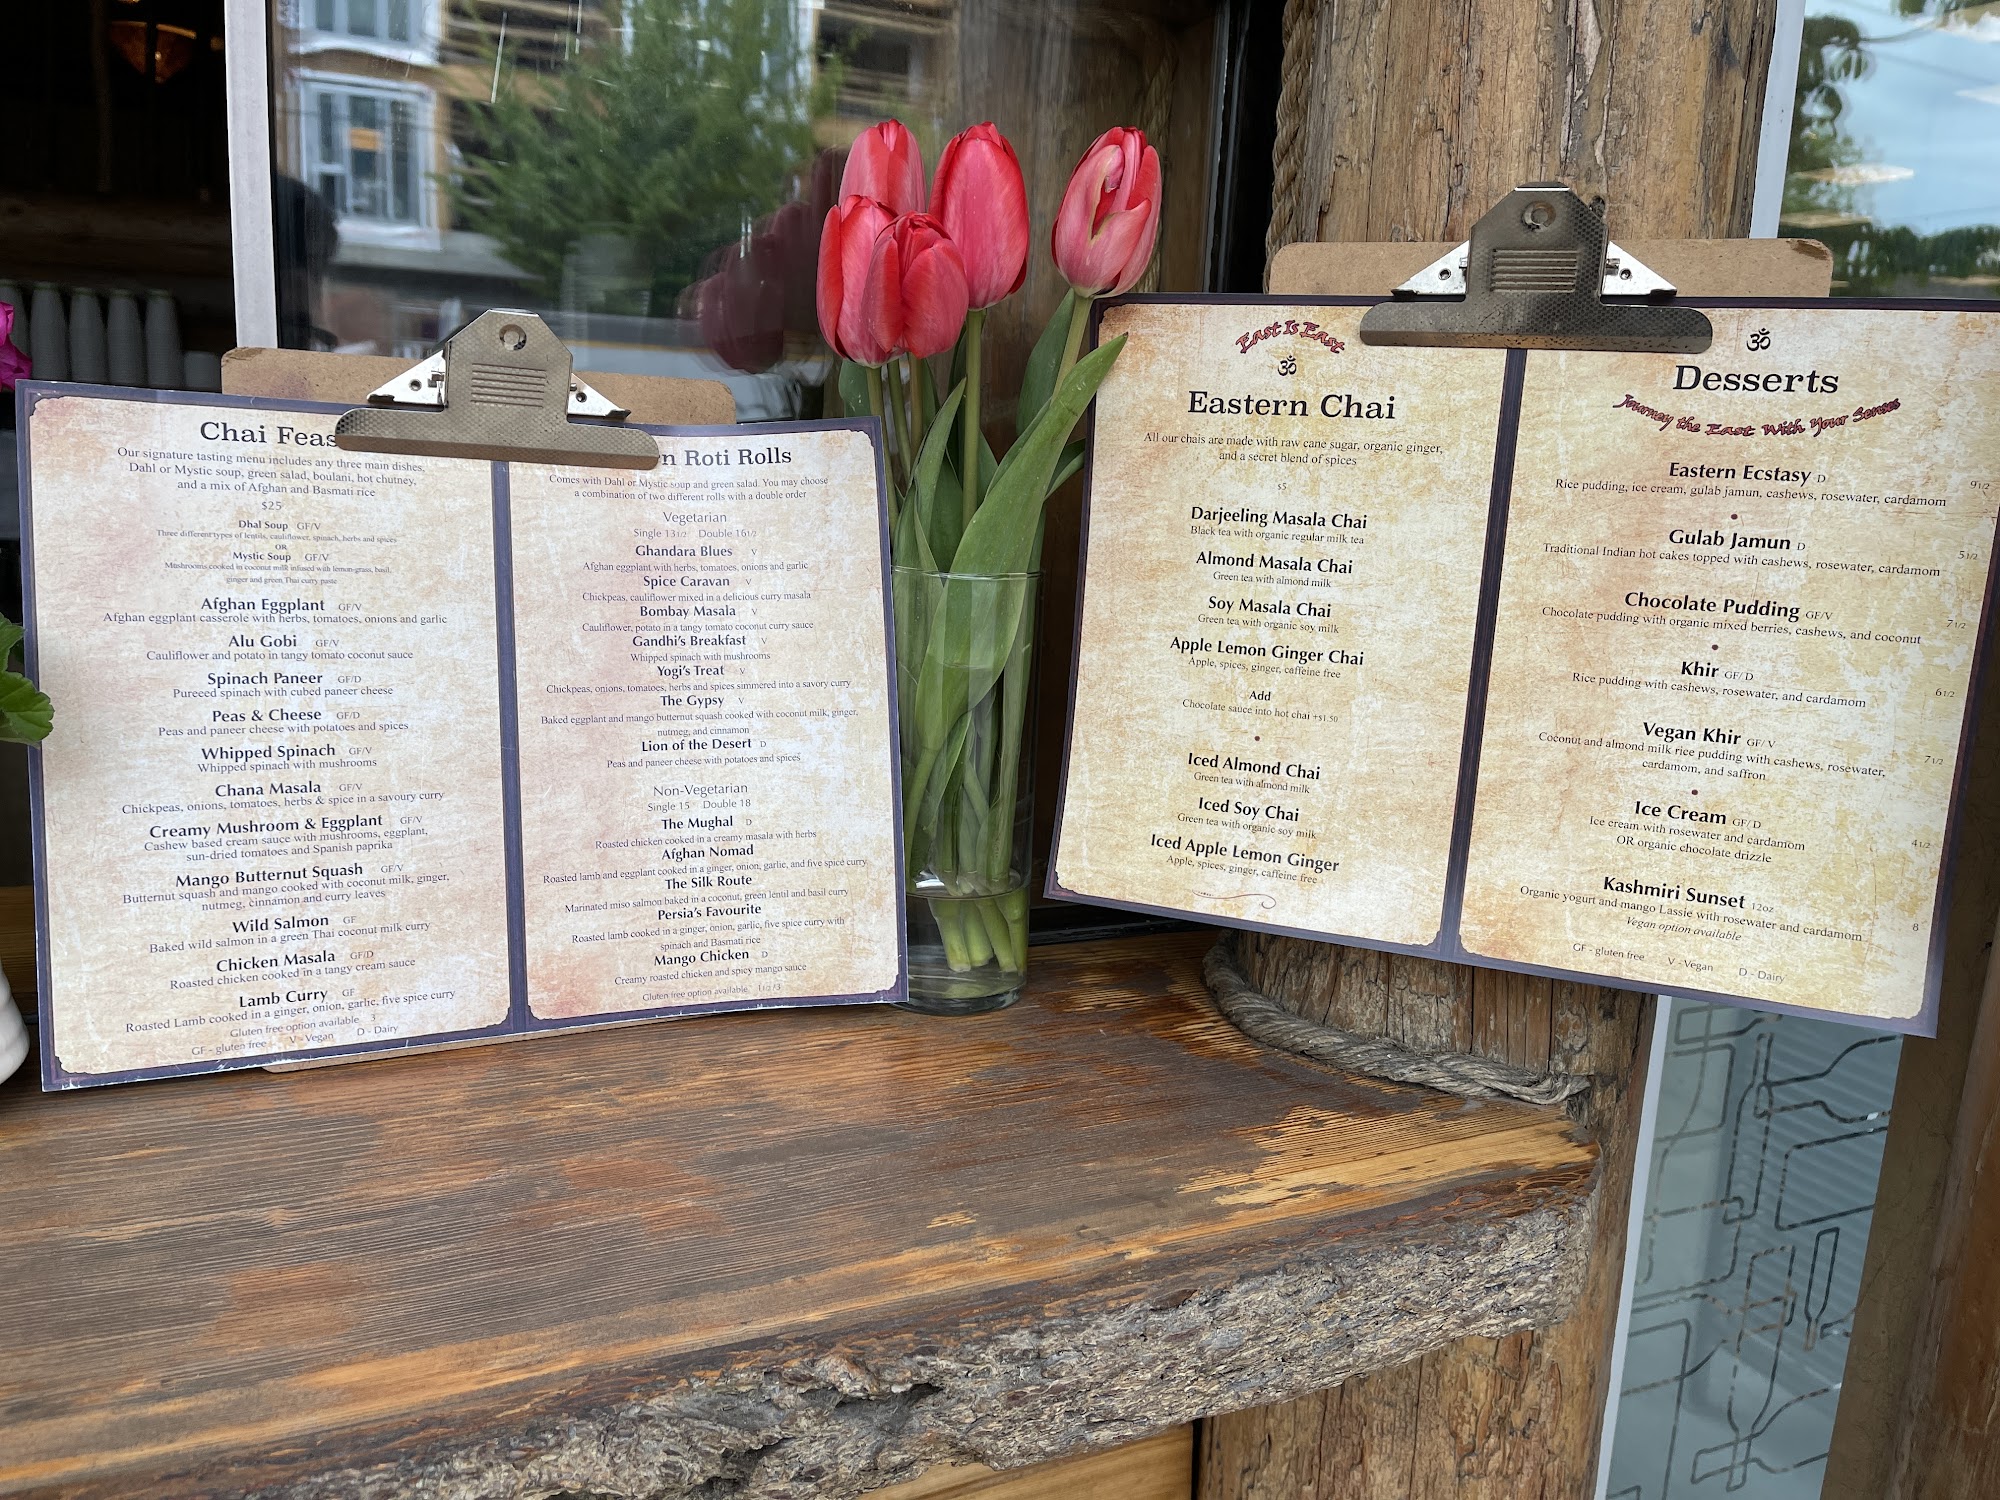 Chai Feas
Our signature tasting menu includes any three main dishes,
Dahl or Mystic soup, green salad, boulani, hot chutney,
and a mix of Afghan and Basmati rice
$25
Dhal Soup GF/V
Three different types of lentils, cauliflower, spinach, herbs and spices
OR
Mystic Soup GF/V
Mushrooms cooked in coconut milk infused with lemon-grass, basil,
ginger and green Thai curry paste
Afghan Eggplant GF/V
Afghan eggplant casserole with herbs, tomatoes, onions and garlic
Alu Gobi GF/V
Cauliflower and potato in tangy tomato coconut sauce
Spinach Paneer GF/D
Pureced spinach with cubed paneer cheese
Peas & Cheese GF/D
Peas and paneer cheese with potatoes and spices
Whipped Spinach GF/V
Whipped spinach with mushrooms
Chana Masala GF/V
Chickpeas, onions, tomatoes, herbs & spice in a savoury curry
Creamy Mushroom & Eggplant GF/V
Cashew based cream sauce with mushrooms, eggplant,
sun-dried tomatoes and Spanish paprika
Mango Butternut Squash GF/V
Butternut squash and mango cooked with coconut milk, ginger,
nutmeg, cinnamon and curry leaves
Wild Salmon GF
Baked wild salmon in a green Thai coconut milk curry
Chicken Masala GF/D
Roasted chicken cooked in a tangy cream sauce
Lamb Curry GF
Roasted Lamb cooked in a ginger, onion, garlic, five spice curry
Gluten free option available 3
GF - gluten free V - Vegan D - Dairy
rn Roti Rolls
Comes with Dahl or Mystic soup and green salad. You may choose
a combination of two different rolls with a double order
Vegetarian
Single 13 1/2 Double 16 1/2
Ghandara Blues V
Afghan eggplant with herbs, tomatoes, onions and garlic
Spice Caravan V
Chickpeas, cauliflower mixed in a delicious curry masala
Bombay Masala V
Cauliflower, potato in a tangy tomato coconut curry sauce
Gandhi's Breakfast V
Whipped spinach with mushrooms
Yogi's Treat V
Chickpeas, onions, tomatoes, herbs and spices simmered into a savory curry
The Gypsy V
Baked eggplant and mango butternut squash cooked with coconut milk, ginger,
nutmeg, and cinnamon
Lion of the Desert D
Peas and paneer cheese with potatoes and spices
Non-Vegetarian
Single 15 Double 18
The Mughal D
Roasted chicken cooked in a creamy masala with herbs
Afghan Nomad
Roasted lamb and eggplant cooked in a ginger, onion, garlic, and five spice curry
The Silk Route
Marinated miso salmon baked in a coconut, green lentil and basil curry
Persia's Favourite
Roasted lamb cooked in a ginger, onion, garlic, five spice curry with
spinach and Basmati rice
Mango Chicken D
Creamy roasted chicken and spicy mango sauce
Gluten free option available 1 1/2 /3
East Is East
ॐ
Eastern Chai
All our chais are made with raw cane sugar, organic ginger,
and a secret blend of spices
$5
Darjeeling Masala Chai
Black tea with organic regular milk tea
Almond Masala Chai
Green tea with almond milk
Soy Masala Chai
Green tea with organic soy milk
Apple Lemon Ginger Chai
Apple, spices, ginger, caffeine free
Add
Chocolate sauce into hot chai +$1.50
Iced Almond Chai
Green tea with almond milk
Iced Soy Chai
Green tea with organic soy milk
Iced Apple Lemon Ginger
Apple, spices, ginger, caffeine free
ॐ
Desserts
Journey the East With Your Senses
Eastern Ecstasy D 9 1/2
Rice pudding, ice cream, gulab jamun, cashews, rosewater, cardamom
Gulab Jamun D 5 1/2
Traditional Indian hot cakes topped with cashews, rosewater, cardamom
Chocolate Pudding GF/V 7 1/2
Chocolate pudding with organic mixed berries, cashews, and coconut
Khir GF/D 6 1/2
Rice pudding with cashews, rosewater, and cardamom
Vegan Khir GF/V 7 1/2
Coconut and almond milk rice pudding with cashews, rosewater,
cardamom, and saffron
Ice Cream GF/D 4 1/2
Ice cream with rosewater and cardamom
OR organic chocolate drizzle
Kashmiri Sunset 12oz 8
Organic yogurt and mango Lassie with rosewater and cardamom
Vegan option available
GF - gluten free V - Vegan D - Dairy